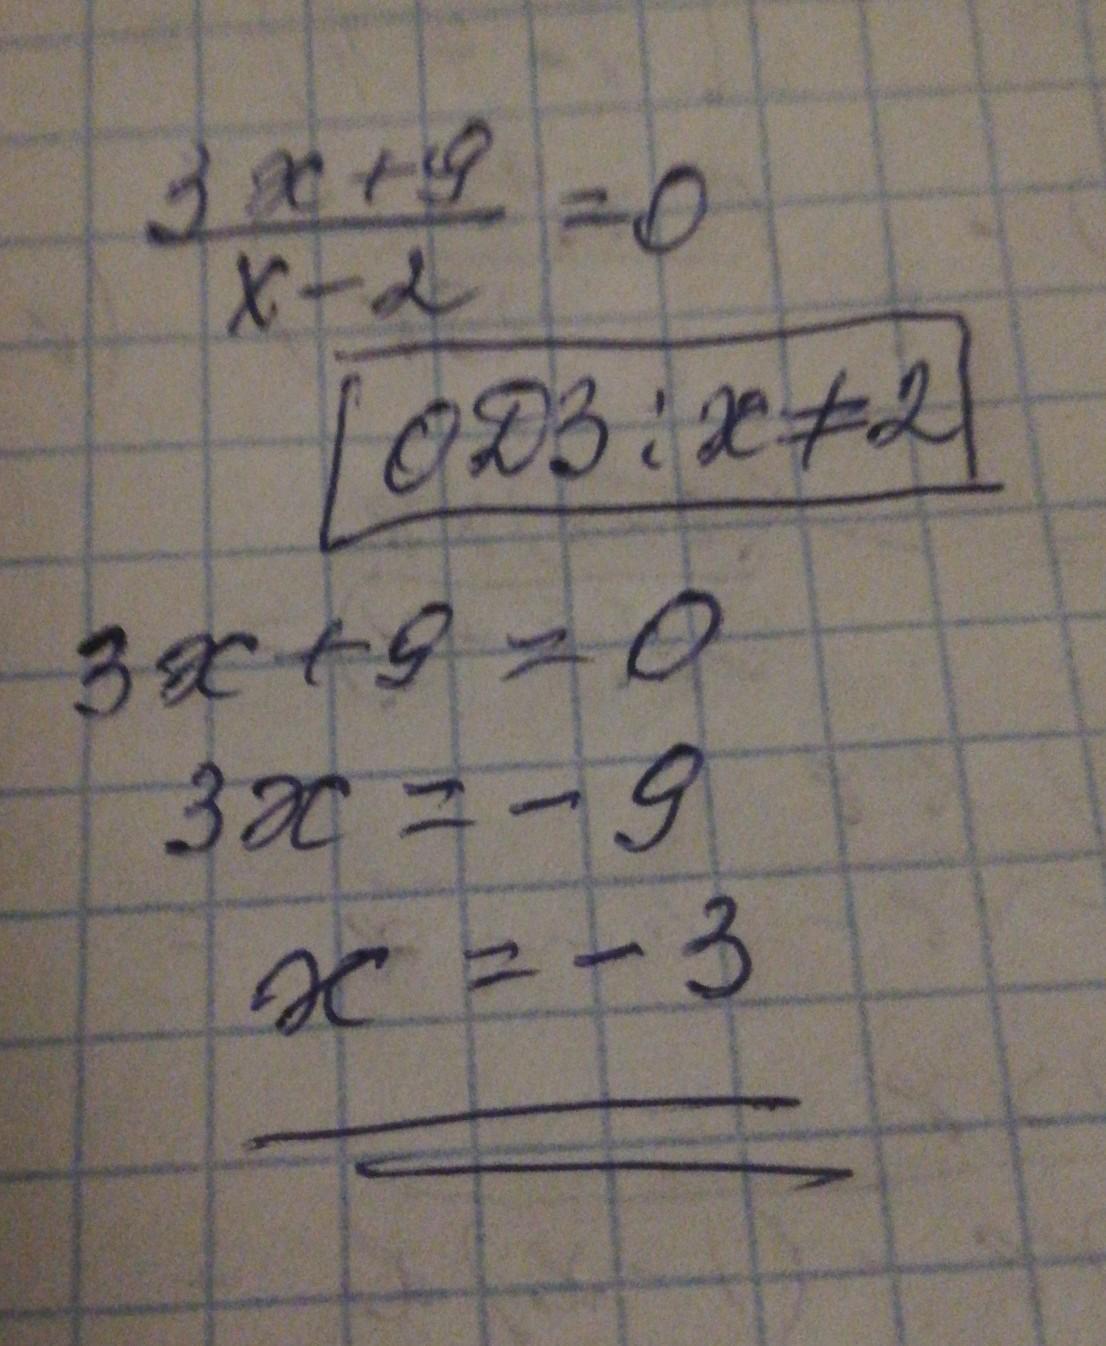 3x+9
x-2
=0
ОДЗ: x≠2
3x+9=0
3x=-9
x=-3